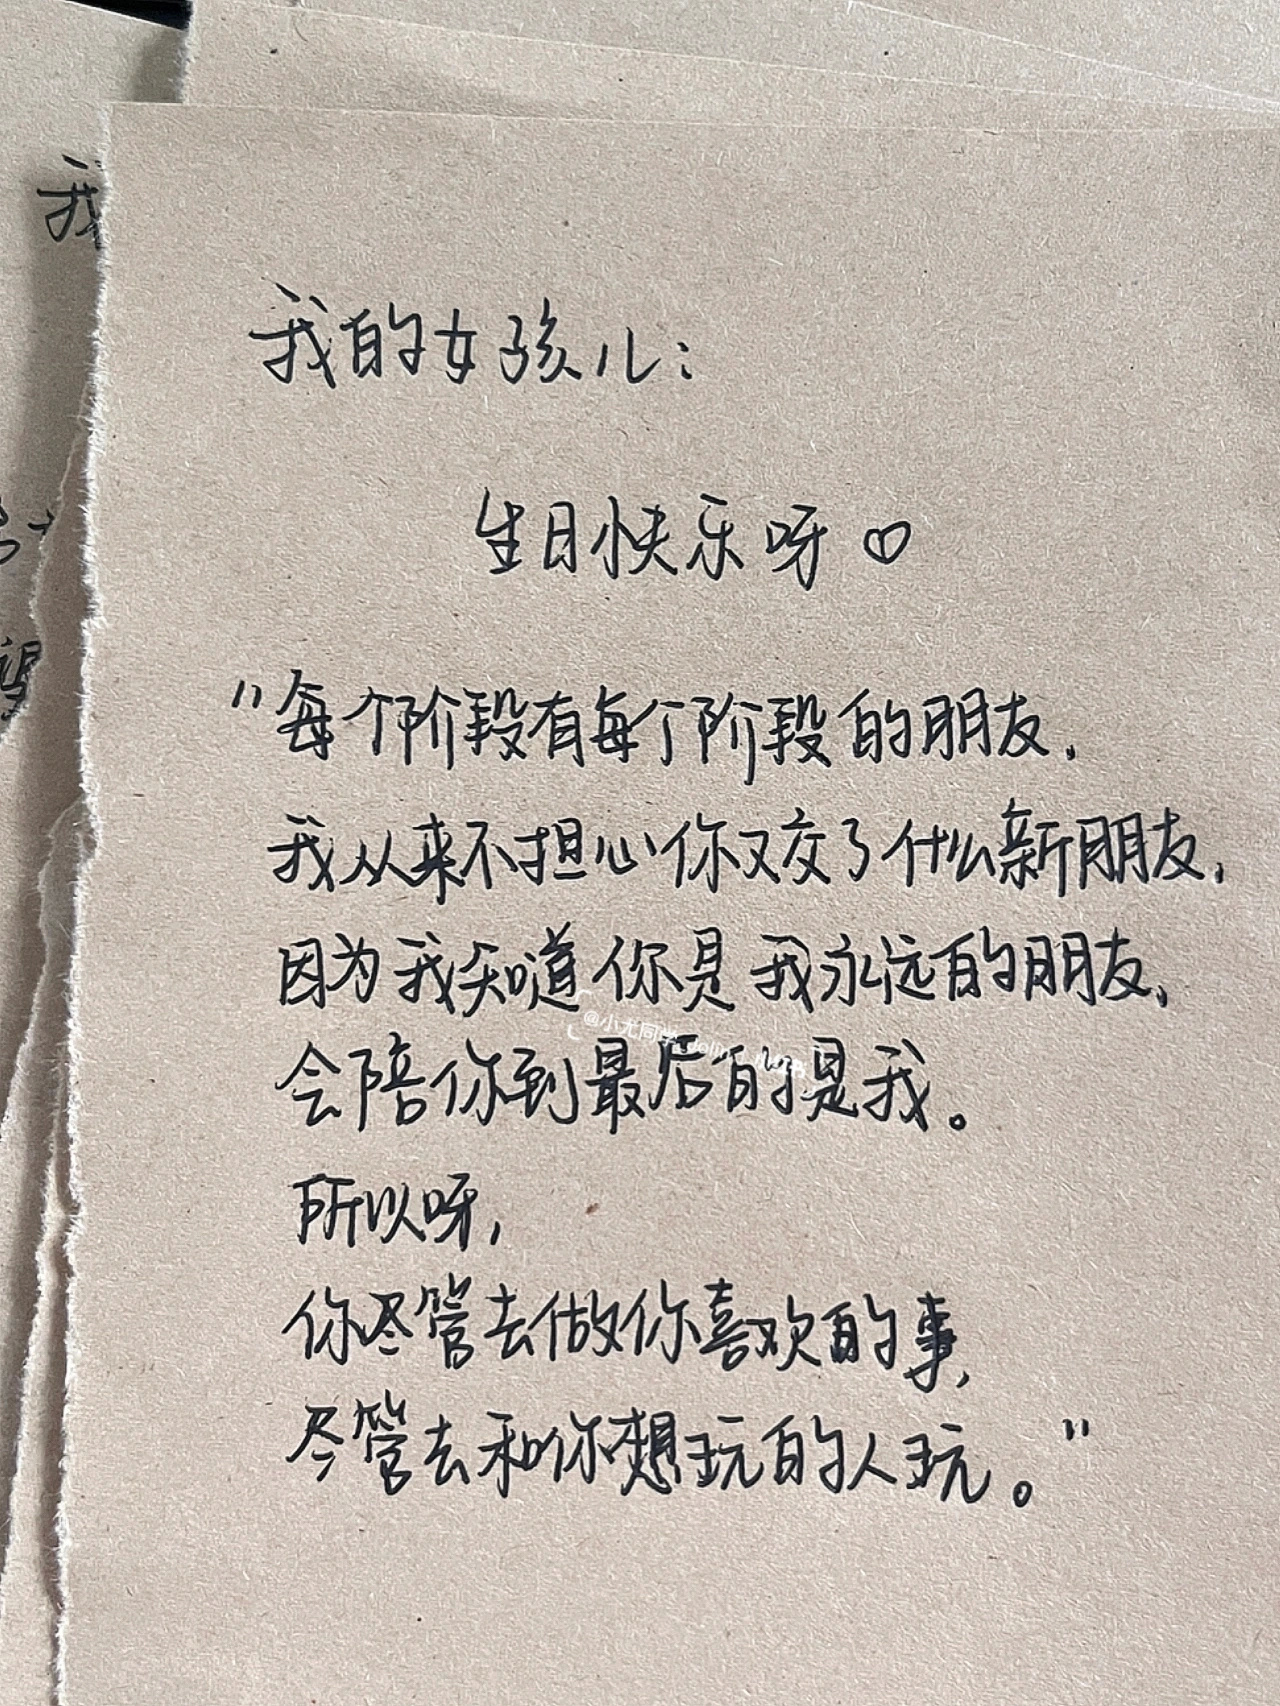 我
我的女孩儿：
生日快乐呀♡
"每个阶段有每个阶段的朋友，
我从来不担心你又交了什么新朋友，
因为我知道你是我永远的朋友，
@小尤同学
会陪你到最后的是我。
所以呀，
你尽管去做你喜欢的事，
尽管去和你想玩的人玩。"